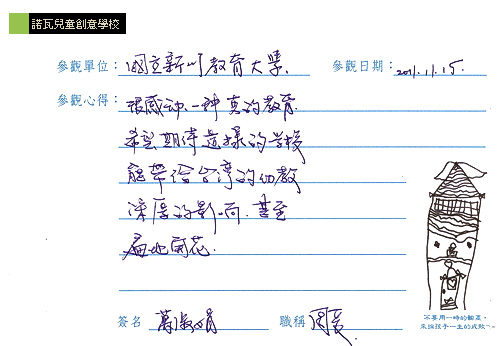 諾瓦兒童創意學校
參觀單位：國立新竹教育大學. 參觀日期：2011.11.15.
參觀心得：很感動、一种真的教育.
希望期待這樣的学校
能帶給台灣的幼教
深厚的影响. 甚至
遍地開花.
不要用一時的輸贏，
來論孩子一生的成敗
簽名 蕭淑娟 職稱